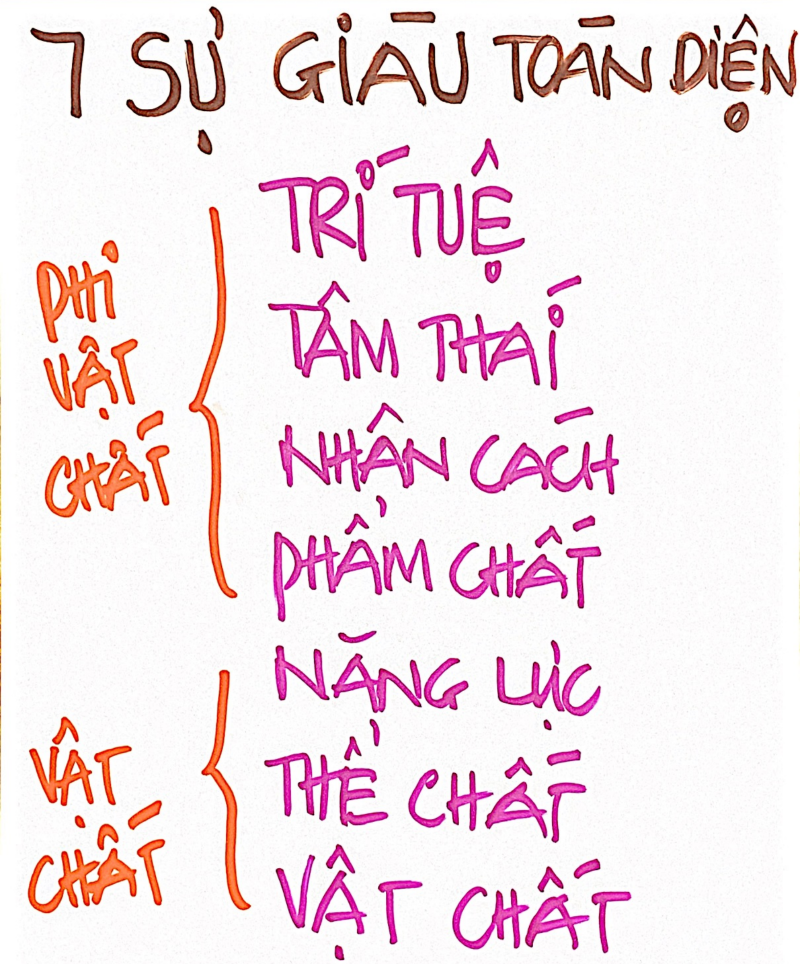 7 SỰ GIÀU TOÀN DIỆN
PHI
VẬT
CHẤT
TRÍ TUỆ
TÂM THÁI
NHÂN CÁCH
PHẨM CHẤT
VẬT
CHẤT
NĂNG LỰC
THỂ CHẤT
VẬT CHẤT